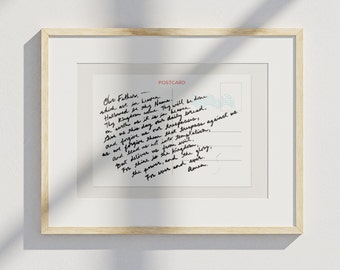 POSTCARD
Our Father —
which art in heaven,
Hallowed be thy Name.
Thy Kingdom come. Thy will be done
on earth as it is in heaven.
Give us this day our daily bread.
And forgive us our trespasses,
as we forgive them that trespass against us
And lead us not into temptation,
But deliver us from evil.
For thine is the Kingdom,
the power, and the glory,
For ever and ever.
Amen.